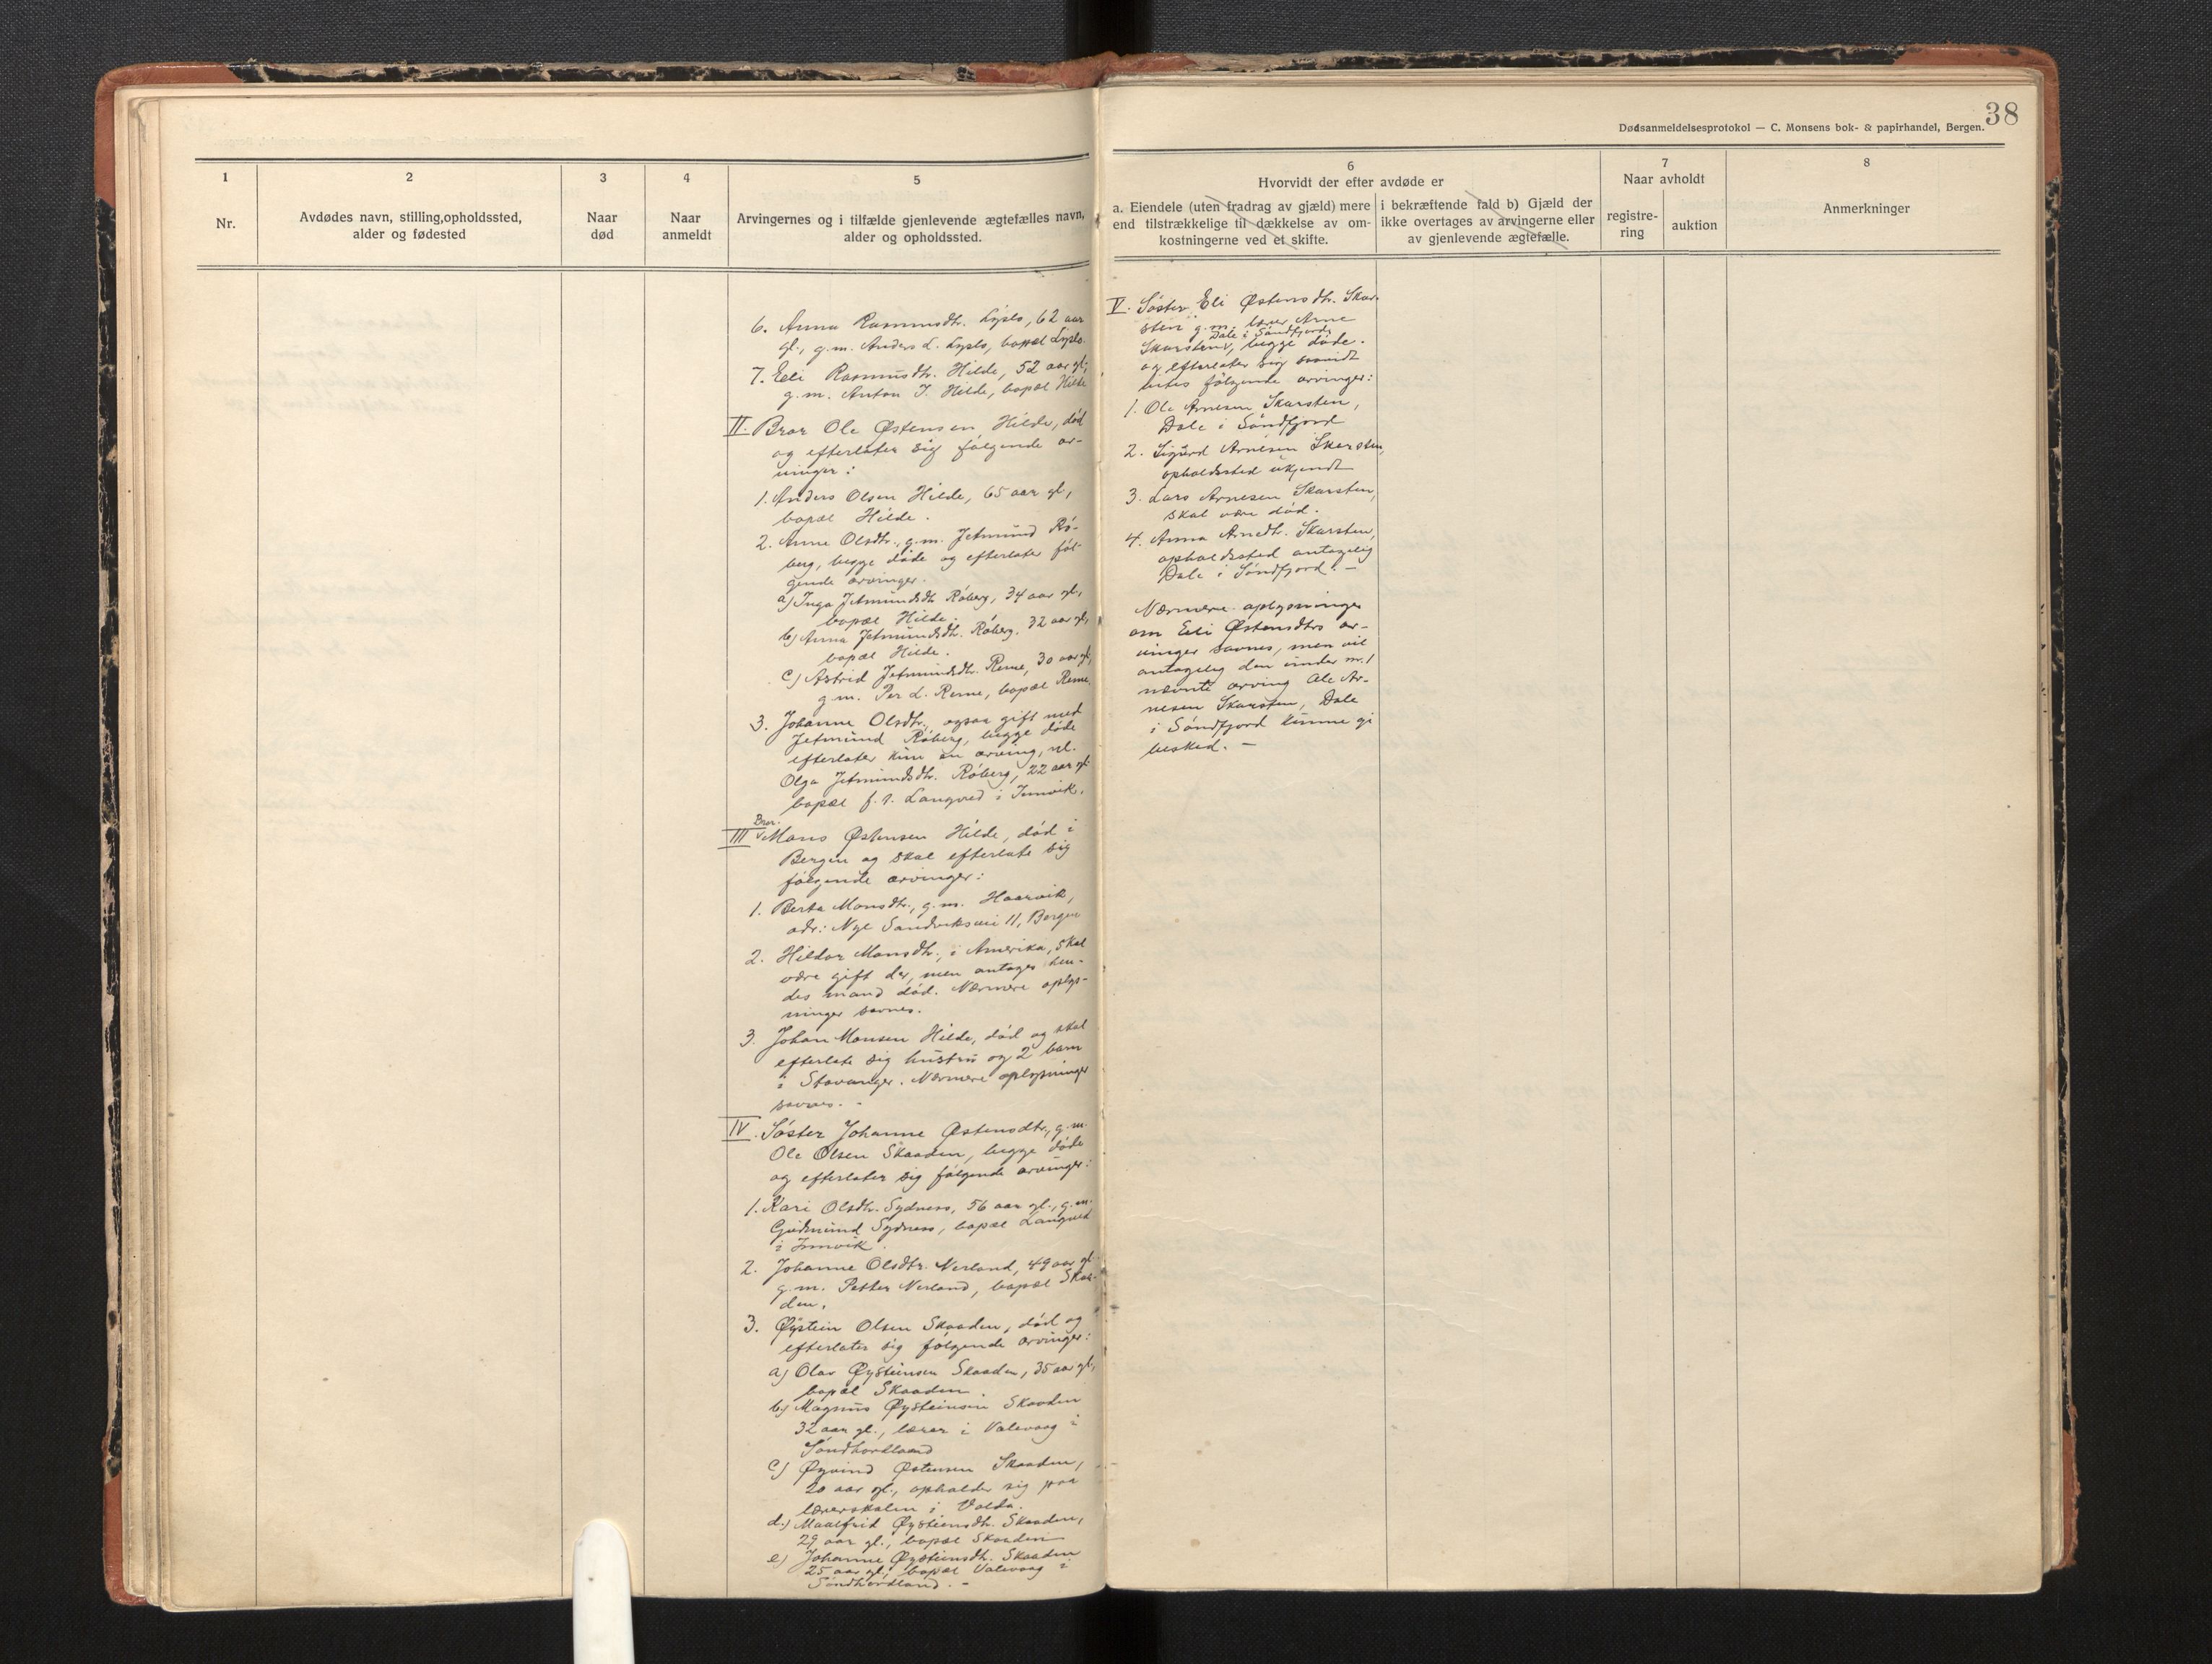 1
2
3
4
5
Nr.
Avdødes navn, stilling,opholdssted,
alder og fødested
Naar
død
Naar
anmeldt
Arvingernes og i tilfælde gjenlevende ægtefælles navn,
alder og opholdssted.
6. Anna Rasmusdtr. Lyslo, 62 aar
gl., g.m. Anders L. Lyslo, bopæl Lyslo.
7. Eli Rasmusdtr. Hilde, 52 aar gl.,
g.m. Anton J. Hilde, bopæl Hilde
II. Bror Ole Østensen Hilde, død
og efterlater sig følgende ar-
vinger:
1. Anders Olsen Hilde, 65 aar gl,
bopæl Hilde.
2. Anne Olsdtr., g.m. Jetmund Rø-
berg, begge døde og efterlater føl-
gende arvinger.
a) Inga Jetmundsdtr. Røberg, 34 aar gl.,
bopæl Hilde.
b) Anna Jetmundsdtr. Røberg, 32 aar gl,
bopæl Hilde.
c) Astrid Jetmundsdtr. Reme, 30 aar gl,
g.m. Per L. Reme, bopæl Reme.
3. Johanne Olsdtr., ogsaa gift med
Jetmund Røberg, begge døde
efterlater kun en arving, nl.
Olga Jetmundsdtr. Røberg, 22 aar gl.
bopæl f.t. Langved i Innvik.
Bror.
III Mons Østensen Hilde, død i
Bergen og skal efterlate sig
følgende arvinger:
1. Berta Monsdtr., g.m. Haarvik,
adr: Nye Sandviksvei 11, Bergen
2. Hildar Monsdtr., i Amerika, skal
være gift der, men antages hen-
des mand død. Nærmere oplys-
ninger savnes.
3. Johan Monsen Hilde, død og skal
efterlate sig hustru og 2 barn
i Stavanger. Nærmere oplysninger
savnes. -
IV. Søster Johanne Østensdtr., g.m.
Ole Olsen Skaaden, begge døde
og efterlater sig følgende arvinger:
1. Kari Olsdtr. Sydness, 56 aar gl., g.m.
Gudmund Sydness, bopæl Langved
i Innvik.
2. Johanne Olsdtr. Nerland, 49 aar gl.
g.m. Petter Nerland, bopæl Skaa-
den.
3. Øystein Olsen Skaaden, død og
efterlater sig følgende arvinger:
a) Olav Øysteinsen Skaaden, 35 aar gl,
bopæl Skaaden
b) Magnus Øysteinsen Skaaden
32 aar gl., lærer i Valevaag i
Søndhordland
c) Øyvind Østensen Skaaden,
20 aar gl., opholder sig paa
lærerskolen i Volda.
d.) Maalfrid Øysteinsdtr. Skaaden,
29 aar gl., bopæl Skaaden
e) Johanne Øysteinsdtr. Skaaden
25 aar gl., bopæl Valevaag i
Søndhordland. -
38
Dødsanmeldelsesprotokol — C. Monsens bok- & papirhandel, Bergen.
6
Hvorvidt der efter avdøde er
a. Eiendele (uten fradrag av gjæld) mere
end tilstrækkelige til dækkelse av om-
kostningerne ved et skifte.
i bekræftende fald b) Gjæld der
ikke overtages av arvingerne eller
av gjenlevende ægtefælle.
7
Naar avholdt
registre-
ring
auktion
8
Anmerkninger
V. Søster Eli Østensdtr. Skar-
sten g.m. lærer Arne
Dale i Søndfjord
Skarsten, begge døde.
og efterlater sig saavidt
vites følgende arvinger:
1. Ole Arnesen Skarsten,
Dale i Søndfjord
2. Sigurd Arnesen Skarsten,
opholdssted ukjendt
3. Lars Arnesen Skarsten,
skal være død.
4. Anna Arnedtr. Skarsten,
opholdssted antagelig
Dale i Søndfjord. -
Nærmere oplysninger
om Eli Østensdtrs ar-
vinger savnes, men vil
antagelig den under nr. 1
nævnte arving Ole Ar-
nesen Skarsten, Dale
i Søndfjord kunne gi
besked. -